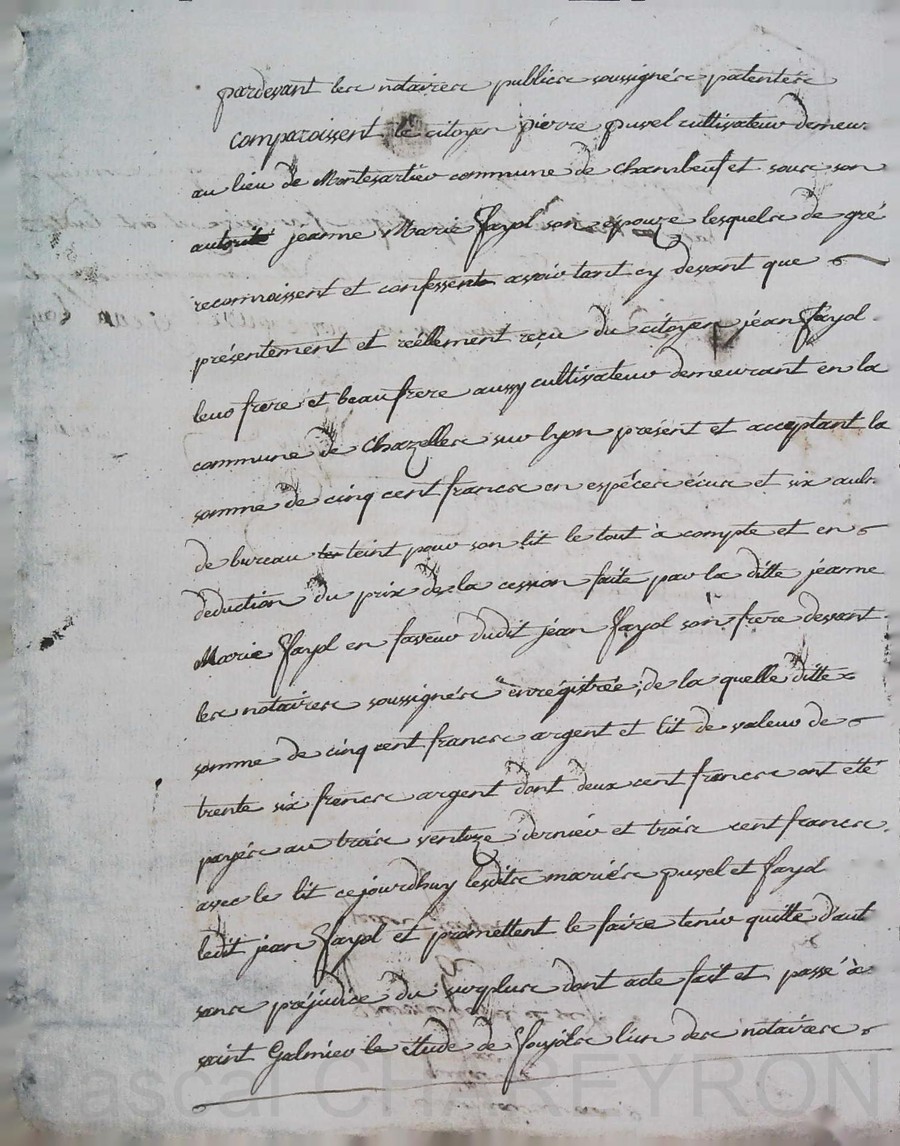 pardevant les notaires publics soussignés patentés
comparoissent le citoyen pierre puvel cultivateur demeur
au lieu de Montesartier commune de chambeuf et sous son
autorité jeanne Marie fayol son epouze lesquels de gré
reconnoissent et confessent avoir tant cy devant que
présentement et réellement reçu du citoyen jean fayol
leur frere et beaufrere aussy cultivateur demeurant en la
commune de Chazelles sur lyon présent et acceptant la
somme de cinq cent francs en espéces écus et six aul
de bureau teint pour son lit le tout à compte et en
déduction du prix de la cession faite par la ditte jeanne
Marie fayol en faveur dudit jean fayol son frere devant
les notaires soussignés enrégistrée; de la quelle ditte
somme de cinq cent francs argent et lit de valeur de
trente six francs argent dont deux cent francs ont été
payés au trois ventoze dernier et trois cent francs
avec le lit cejourdhuy lesdits mariés puvel et fayol
ledit jean fayol et promettent le faire tenir quitte d'aut
sans préjudice du surplus dont acte fait et passé à
saint Galmier le étude de l'un des notaires
Pascal CHAREYRON